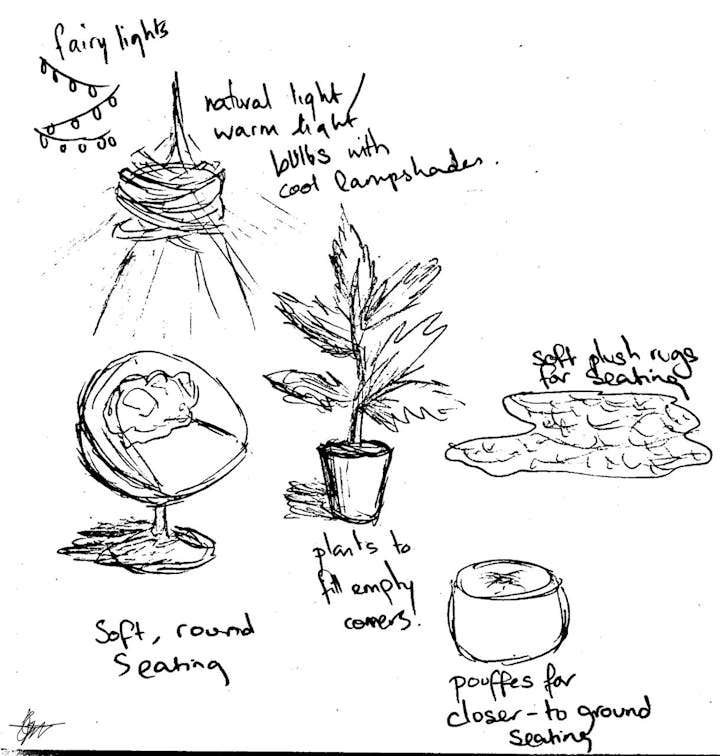 fairy lights
natural light/
warm light
bulbs with
cool lampshades.
soft plush rugs
for seating
plants to
fill empty
corners.
Soft, round
Seating
pouffes for
closer-to ground
seating